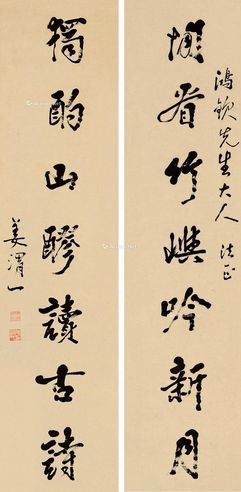 鴻欽先生大人 法正
看竹嶼吟新月
獨酌山醪讀古詩
姜渭一